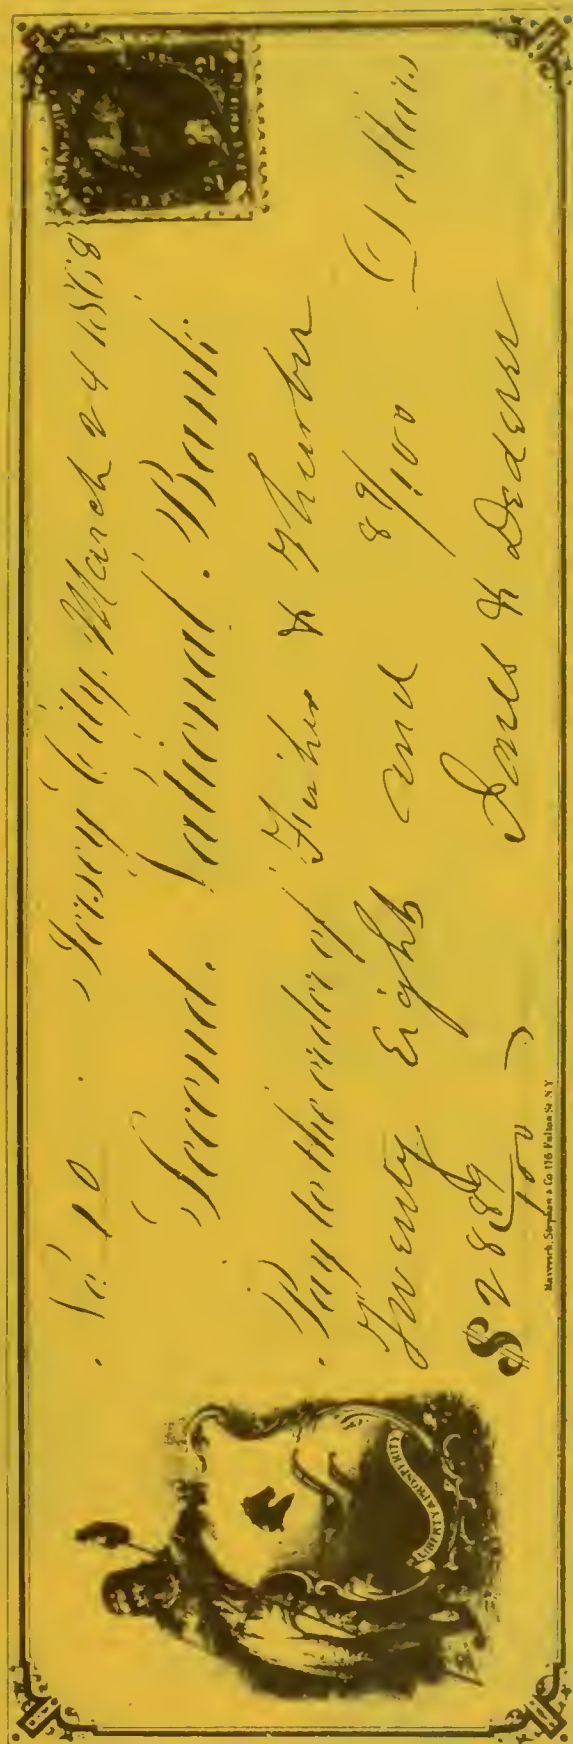 No. 10 Jersey City, March 24 1868
Second National Bank
Pay to the order of Fisher & Thurber
Twenty Eight and 89/100 Dollars
$28 89/100 Jones & Dederer
LIBERTY & PROSPERITY
Maverick, Stephan & Co 176 Fulton St. N.Y